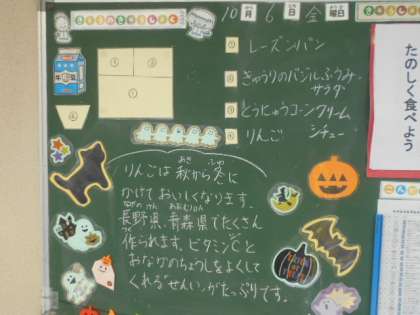 きょうのきゅうしょく
10月6日金曜日
① レーズンパン
② きゅうりのバジルふうみ
サラダ
③ とうにゅうコーンクリーム
シチュー
④ りんご
たのしく食べよう
牛乳
りんごは秋から冬に
あき ふゆ
かけておいしくなります。
ながのけん あおもりけん
長野県、青森県でたくさん
作られます。ビタミンCと
おなかのちょうしをよくして
くれる「せんい」がたっぷりです。